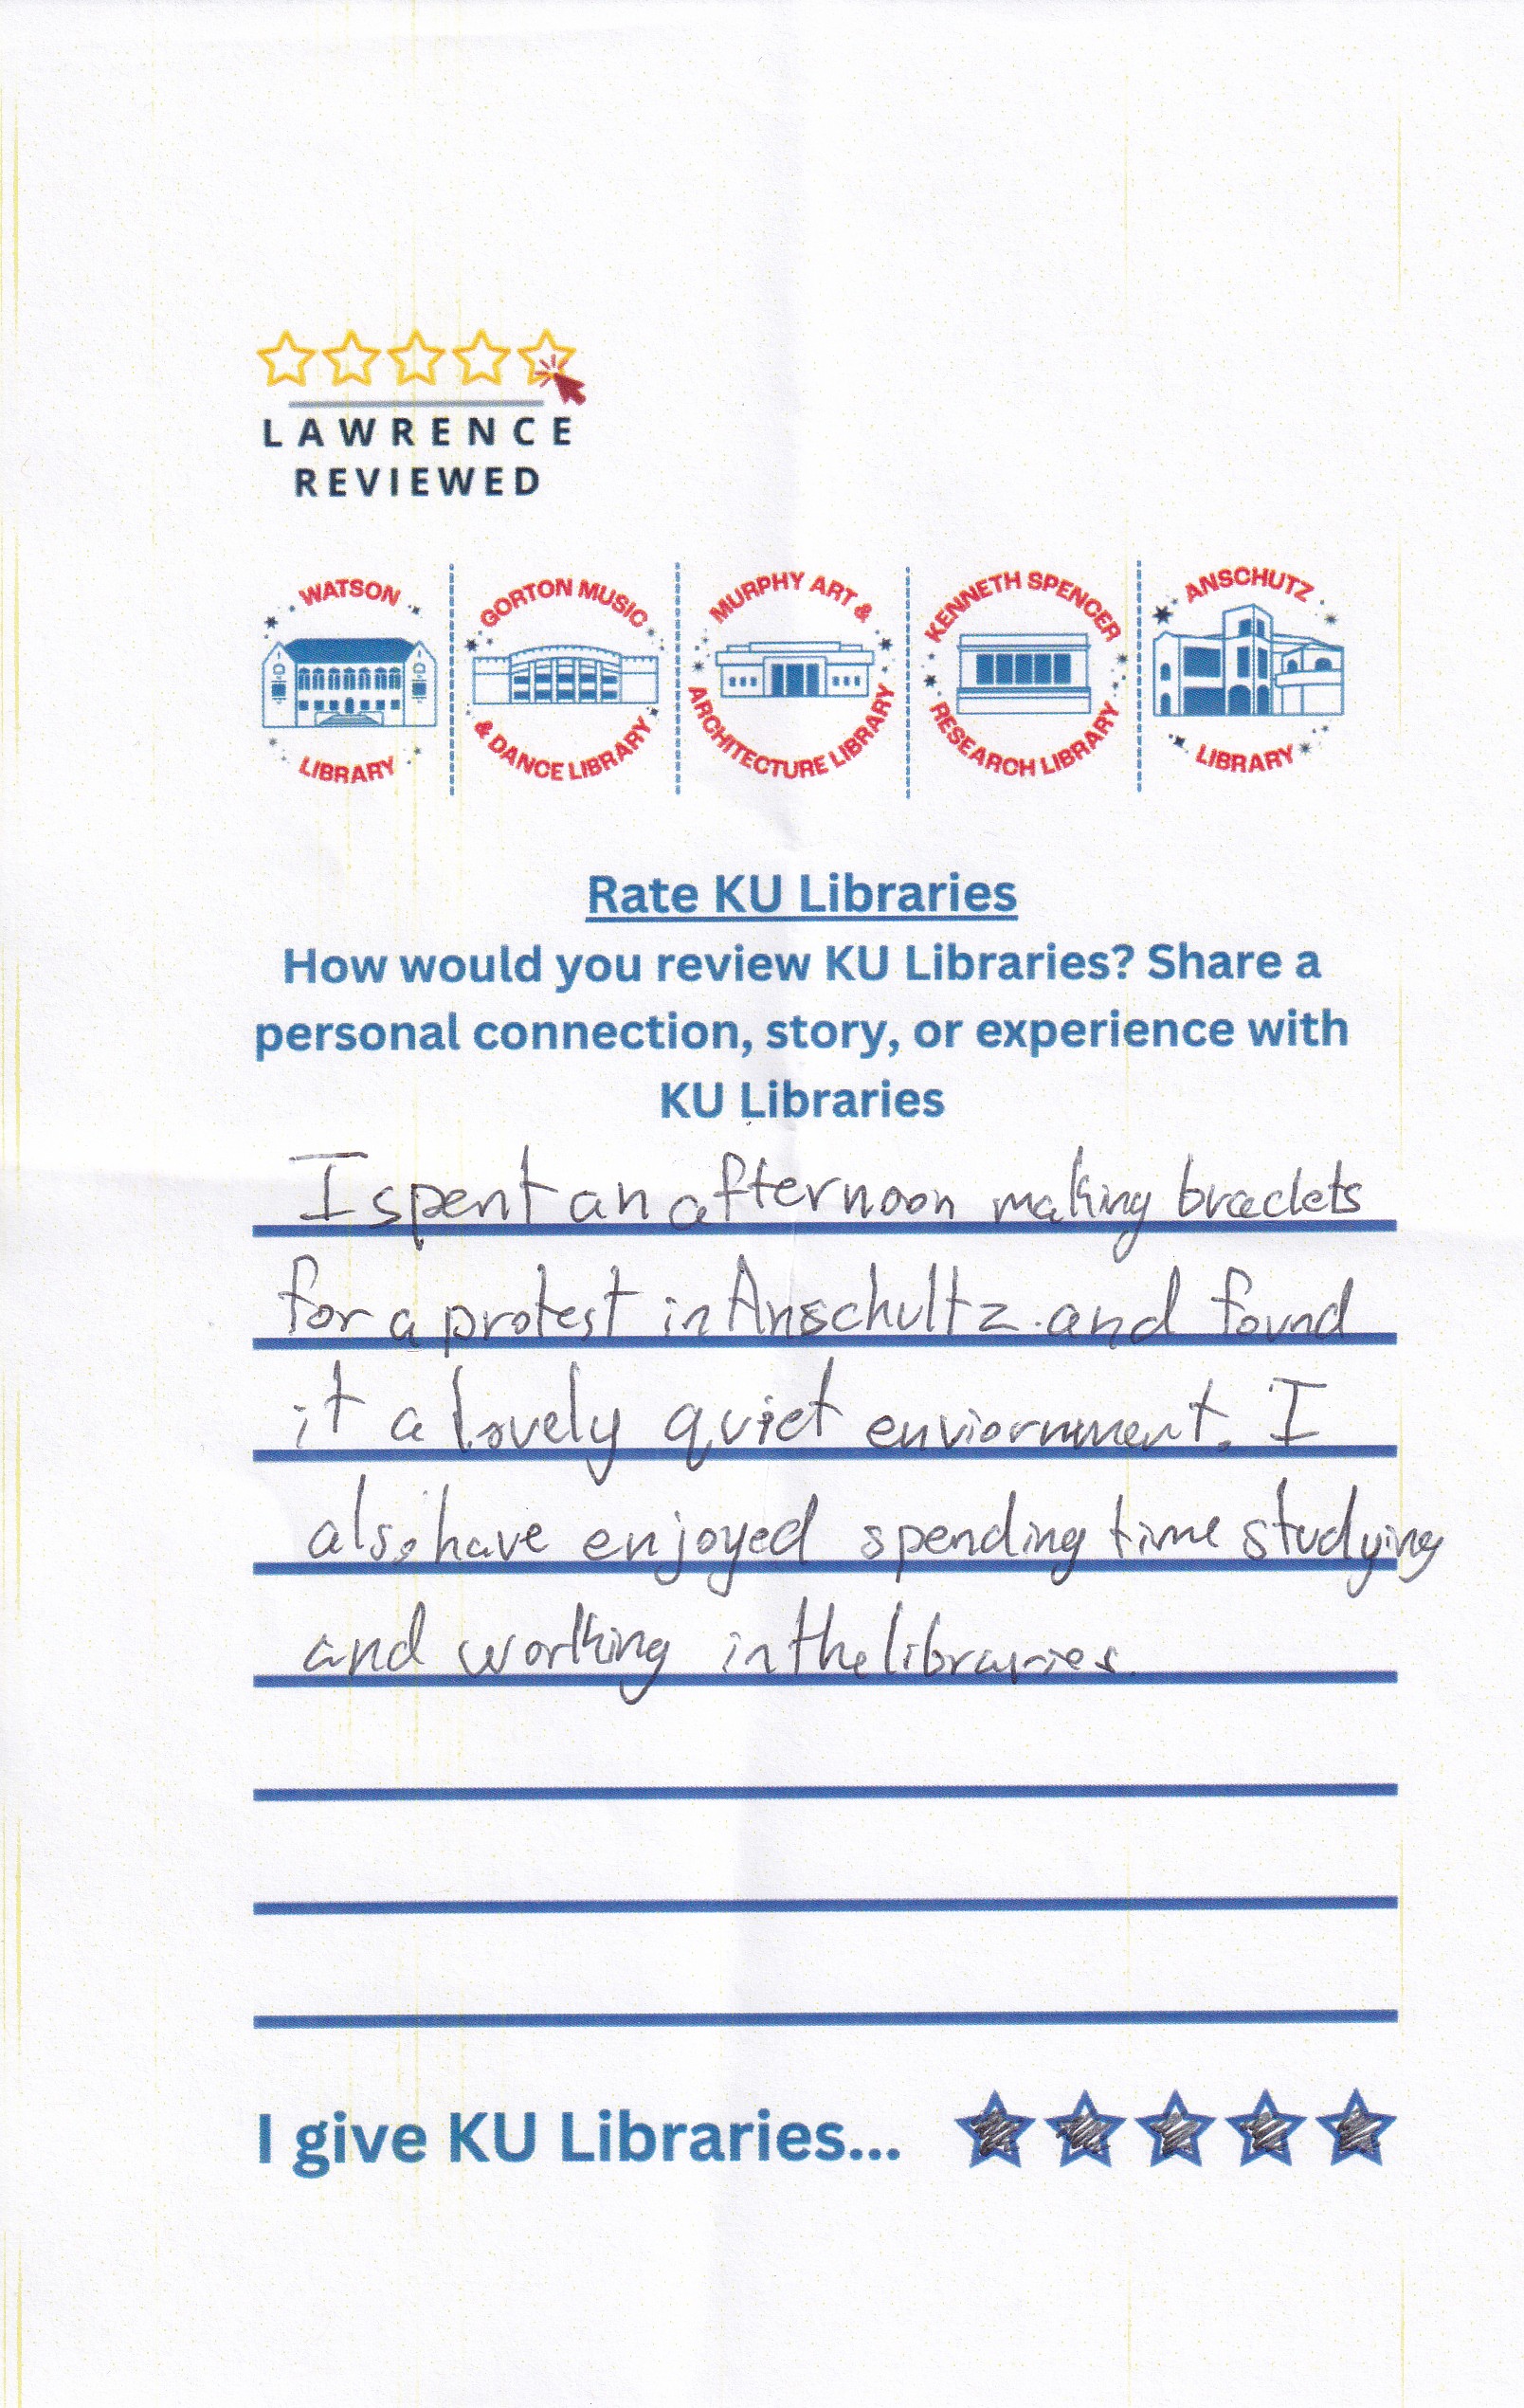 LAWRENCE
REVIEWED
WATSON
LIBRARY
GORTON MUSIC
& DANCE LIBRARY
MURPHY ART &
ARCHITECTURE LIBRARY
KENNETH SPENCER
RESEARCH LIBRARY
ANSCHUTZ
LIBRARY
Rate KU Libraries
How would you review KU Libraries? Share a
personal connection, story, or experience with
KU Libraries
I spent an afternoon making braclets
for a protest in Anschultz and found
it a lovely quiet enviornment. I
also have enjoyed spending time studying
and working in the libraries.
I give KU Libraries...